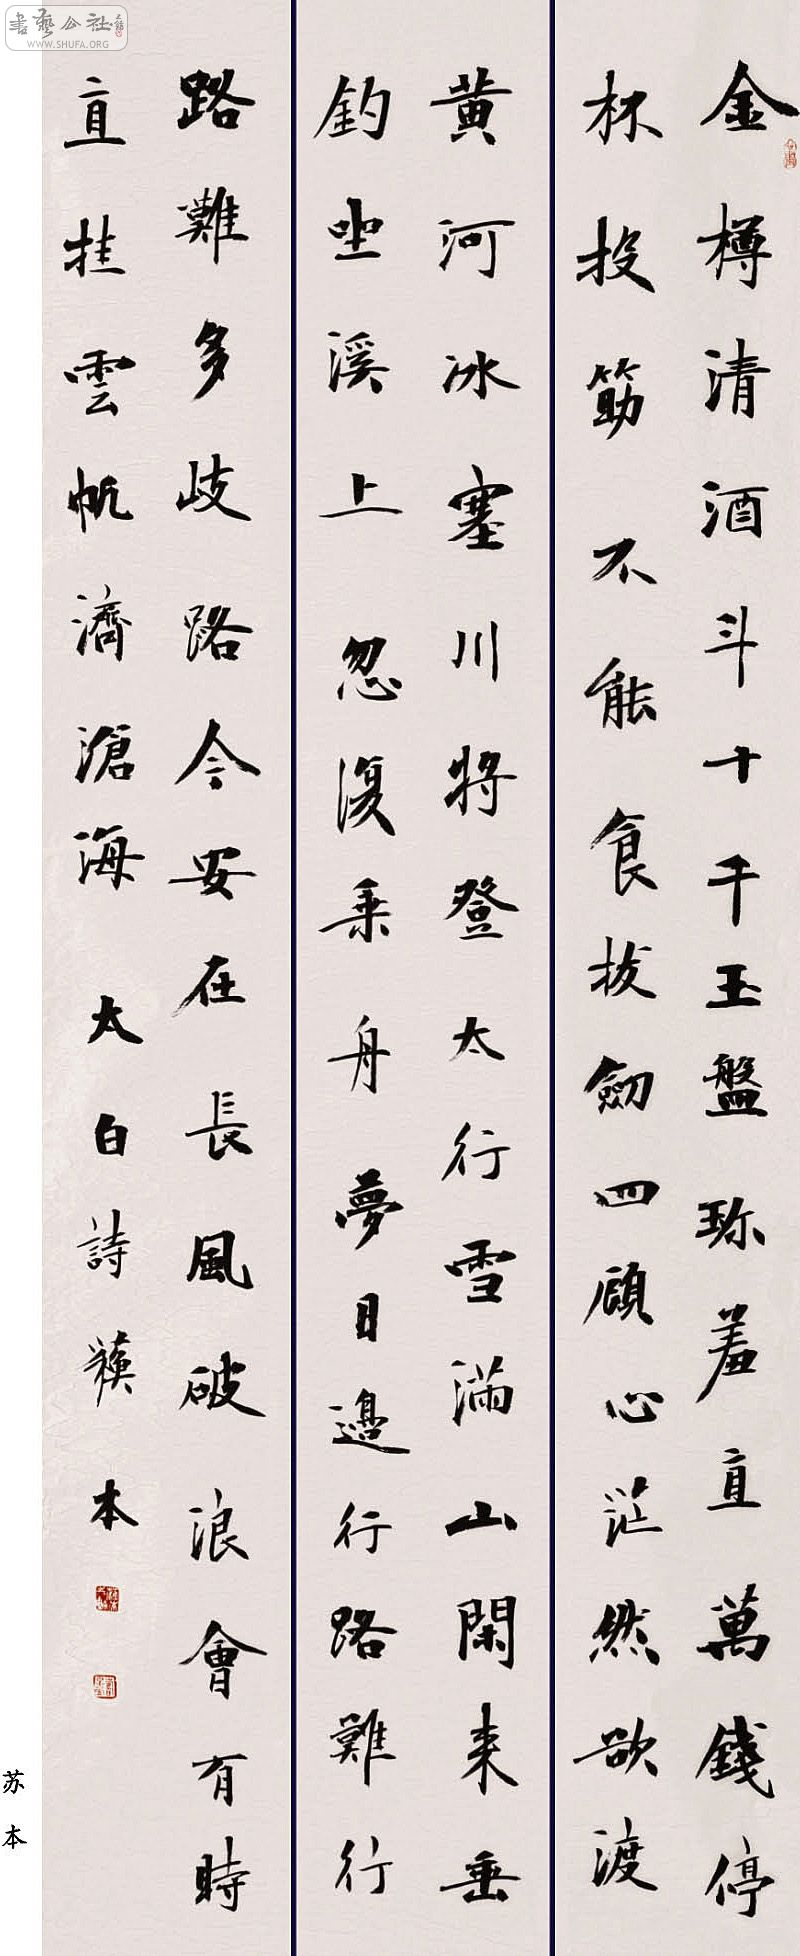 書藝公社
WWW.SHUFA.ORG
金樽清酒斗十千玉盤珎羞直萬錢停
杯投筯不能食拔劒四顧心茫然欲渡
黄河冰塞川將登太行雪滿山閑来垂
釣坐溪上忽復乘舟夢日邊行路難行
路難多歧路今安在長風破浪會有時
直挂雲帆濟滄海 太白詩 蘇本
苏本